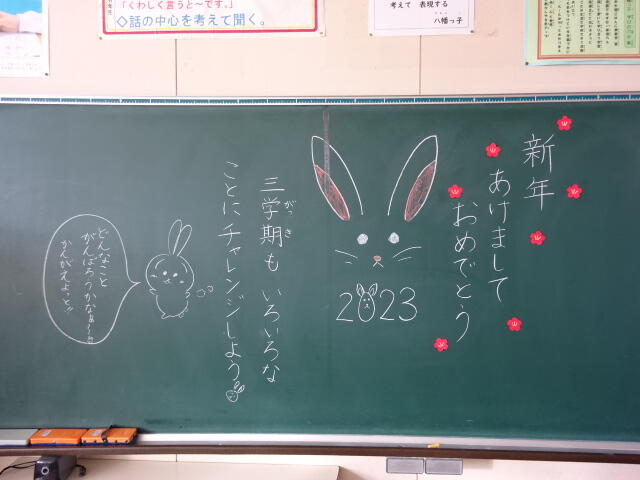 「くわしく言うと~です。」
◇話の中心を考えて聞く。
考えて 表現する
八幡っ子
新年
あけまして
おめでとう
2023
三学期も いろいろな
がっき
ことにチャレンジしよう
どんなこと
がんばろうかなぁ〜。
かんがえよっと!!